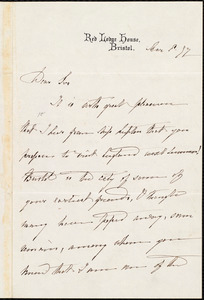 Red Lodge House,
Bristol.
Dear Sir
It is with great pleasure
that I have from Miss that you
propose to visit England next summer!
Bristol is the city of some of
your earliest friends, & though
many have passed away, some
remain, among whom you
that I am one of the